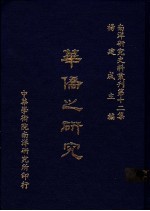 南洋研究史料叢刊第十二集
楊建成主編
華僑之研究
中華學術院南洋研究所印行